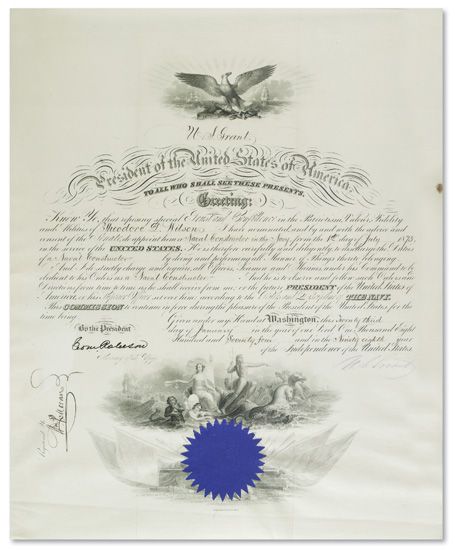 U. S. Grant
President of the United States of America,
TO ALL WHO SHALL SEE THESE PRESENTS,
Greeting:
Know Ye, that reposing special Trust and Confidence in the Patriotism, Valor, Fidelity
and Abilities of Theodore D. Wilson I have nominated, and by and with the advice and
consent of the Senate, do appoint him a Naval Constructor in the Navy, from the 1st day of July 1873,
in the service of the UNITED STATES. He is therefore carefully and diligently to discharge the duties
of a Naval Constructor by doing and performing all Manner of Things thereto belonging.
And I do strictly charge and require all Officers, Seamen and Marines, under his Command to be
obedient to his Orders as a Naval Constructor And he is to observe and follow such Orders and
Directions from time to time as he shall receive from me, or the future PRESIDENT of the United States of
America, or his Superior Officer set over him, according to the Discipline of THE NAVY.
This COMMISSION to continue in force during the pleasure of the President of the United States for the
time being.
Given under my Hand at Washington, this Twenty third
day of January in the year of our Lord One Thousand Eight
Hundred and Seventy four and in the Ninety eighth year
of the Independence of the United States.
By the President
Geo M Robeson
Secretary of the Navy
U. S. Grant
Registered